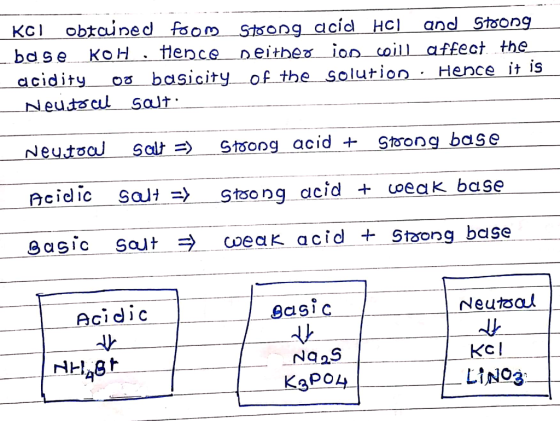 KCl obtained from strong acid HCl and strong
base KOH. Hence neither ion will affect the
acidity or basicity of the solution. Hence it is
Neutral salt.
Neutral salt ⇒ strong acid + strong base
Acidic salt ⇒ strong acid + weak base
Basic salt ⇒ weak acid + strong base
Acidic
⇓
NH4Br
Basic
⇓
Na2S
K3PO4
Neutral
⇓
KCl
LiNO3